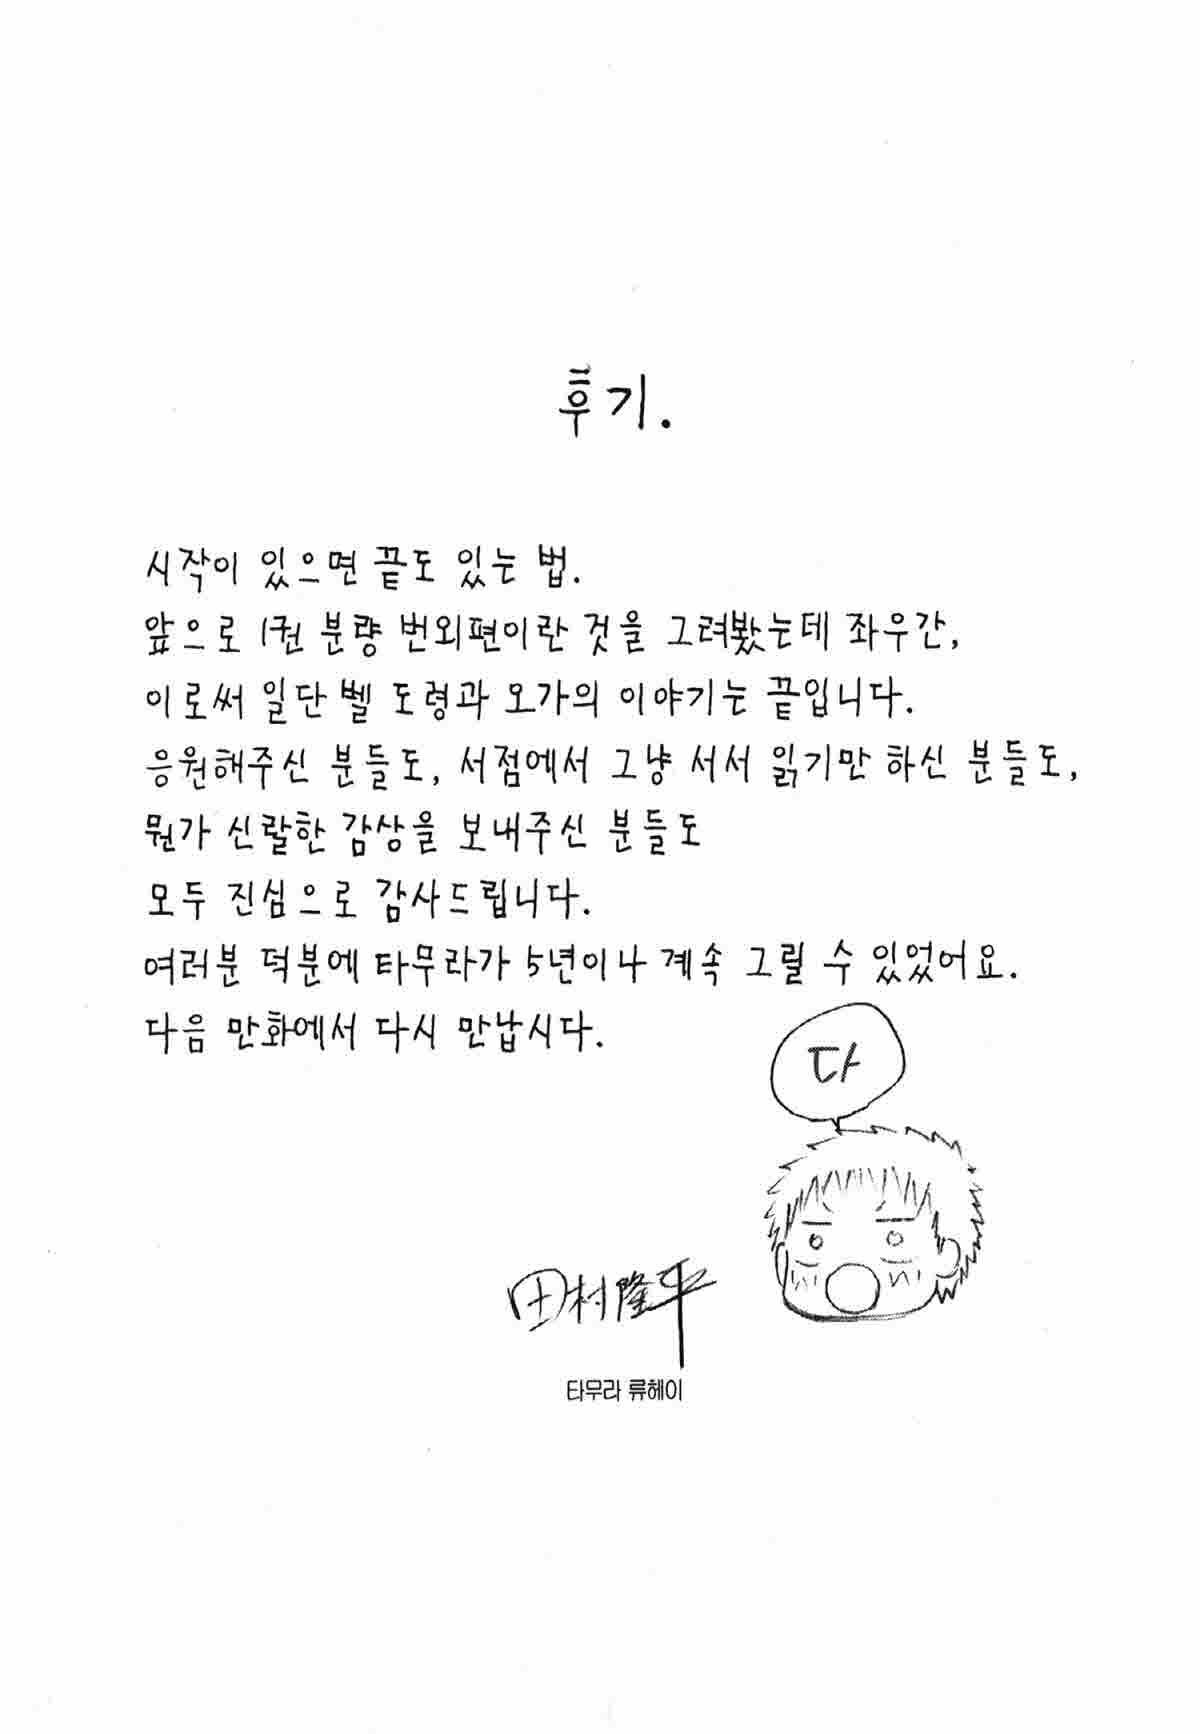 후기.
시작이 있으면 끝도 있는 법.
앞으로 1권 분량 번외편이란 것을 그려봤는데 좌우간,
이로써 일단 벨 도령과 오가의 이야기는 끝입니다.
응원해주신 분들도, 서점에서 그냥 서서 읽기만 하신 분들도,
뭔가 신랄한 감상을 보내주신 분들도
모두 진심으로 감사드립니다.
여러분 덕분에 타무라가 5년이나 계속 그릴 수 있었어요.
다음 만화에서 다시 만납시다.
다
田村隆平
타무라 류헤이